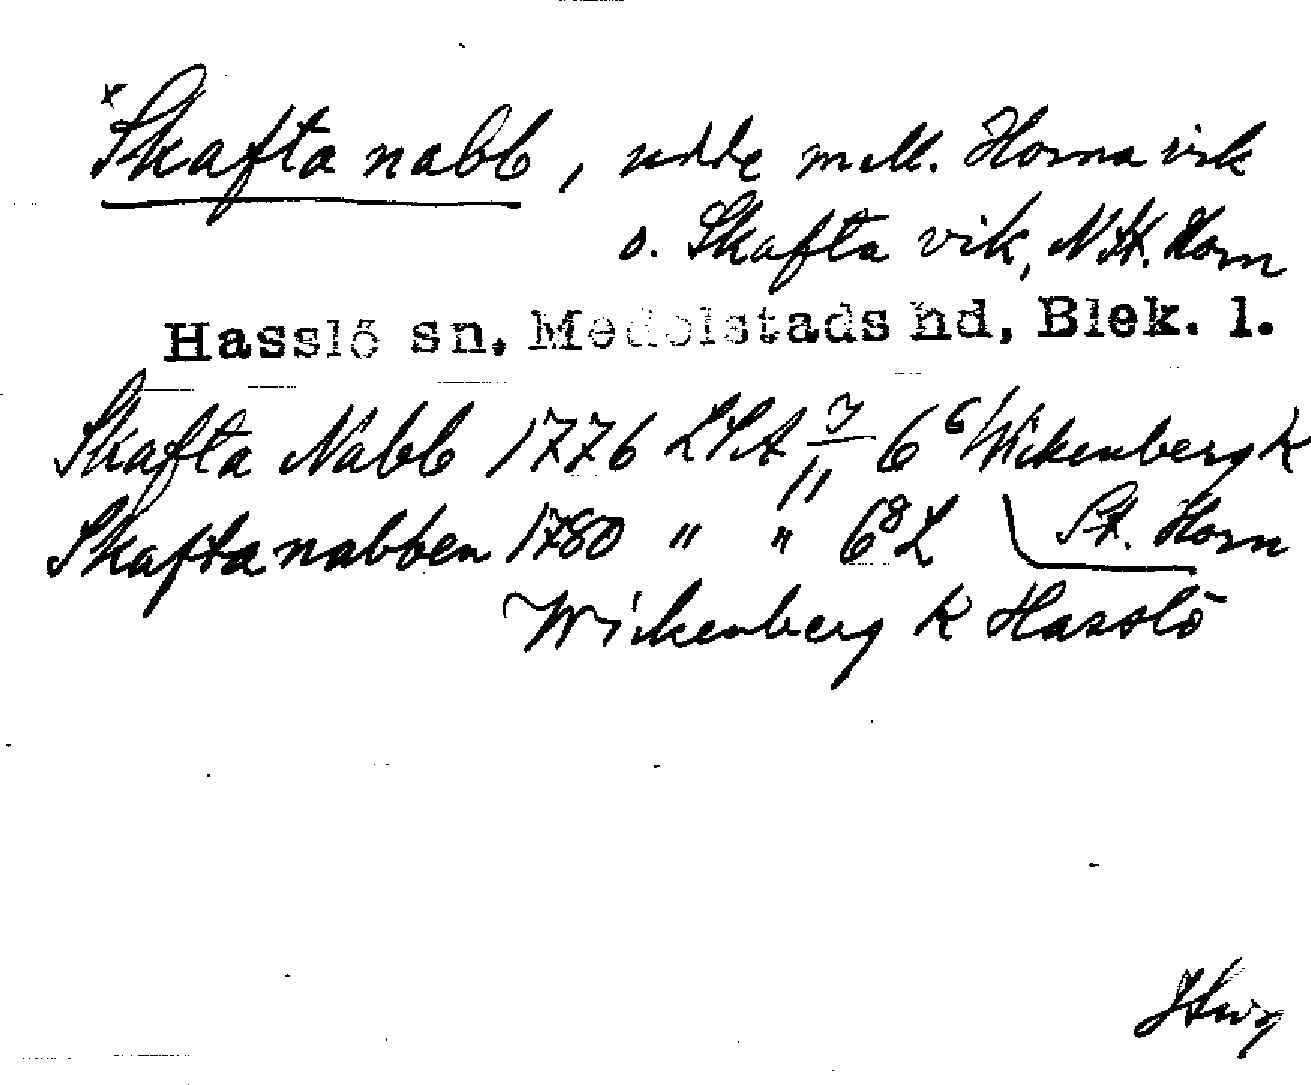 *Skafta nabb, udde mell. Horna vik
o. Skafta vik, N St. Horn
Hasslö sn. Medelstads hd, Blek. l.
Skafta Nabb 1776 LSA 6⁶ Wikenberg K
Skaftanabben 1780 " " 6⁸ L St. Horn
Wickenberg K Hasslö